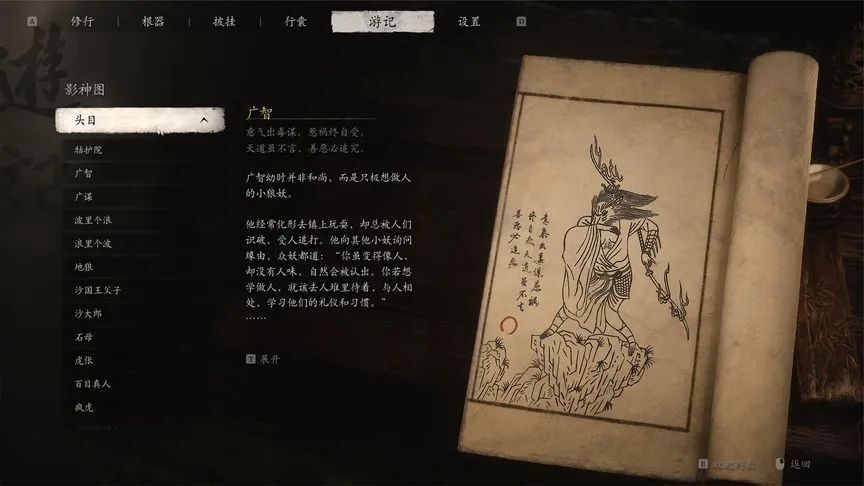 A 修行 根器 披挂 行囊 游记 设置 D
影神图
头目
牯护院
广智
广谋
波里个浪
浪里个波
地狼
沙国王父子
沙大郎
石母
虎伥
百目真人
疯虎
广智
意气出毒谋，惹祸终自受。
天道虽不言，善恶必追究。
广智幼时并非和尚，而是只极想做人
的小狼妖。
他经常化形去镇上玩耍，却总被人们
识破，受人追打。他向其他小妖询问
缘由，众妖都道：“你虽变得像人，
却没有人味，自然会被认出。你若想
学做人，就该去人堆里待着，与人相
处，学习他们的礼仪和习惯。”
……
T 展开
E 收起列表
返回